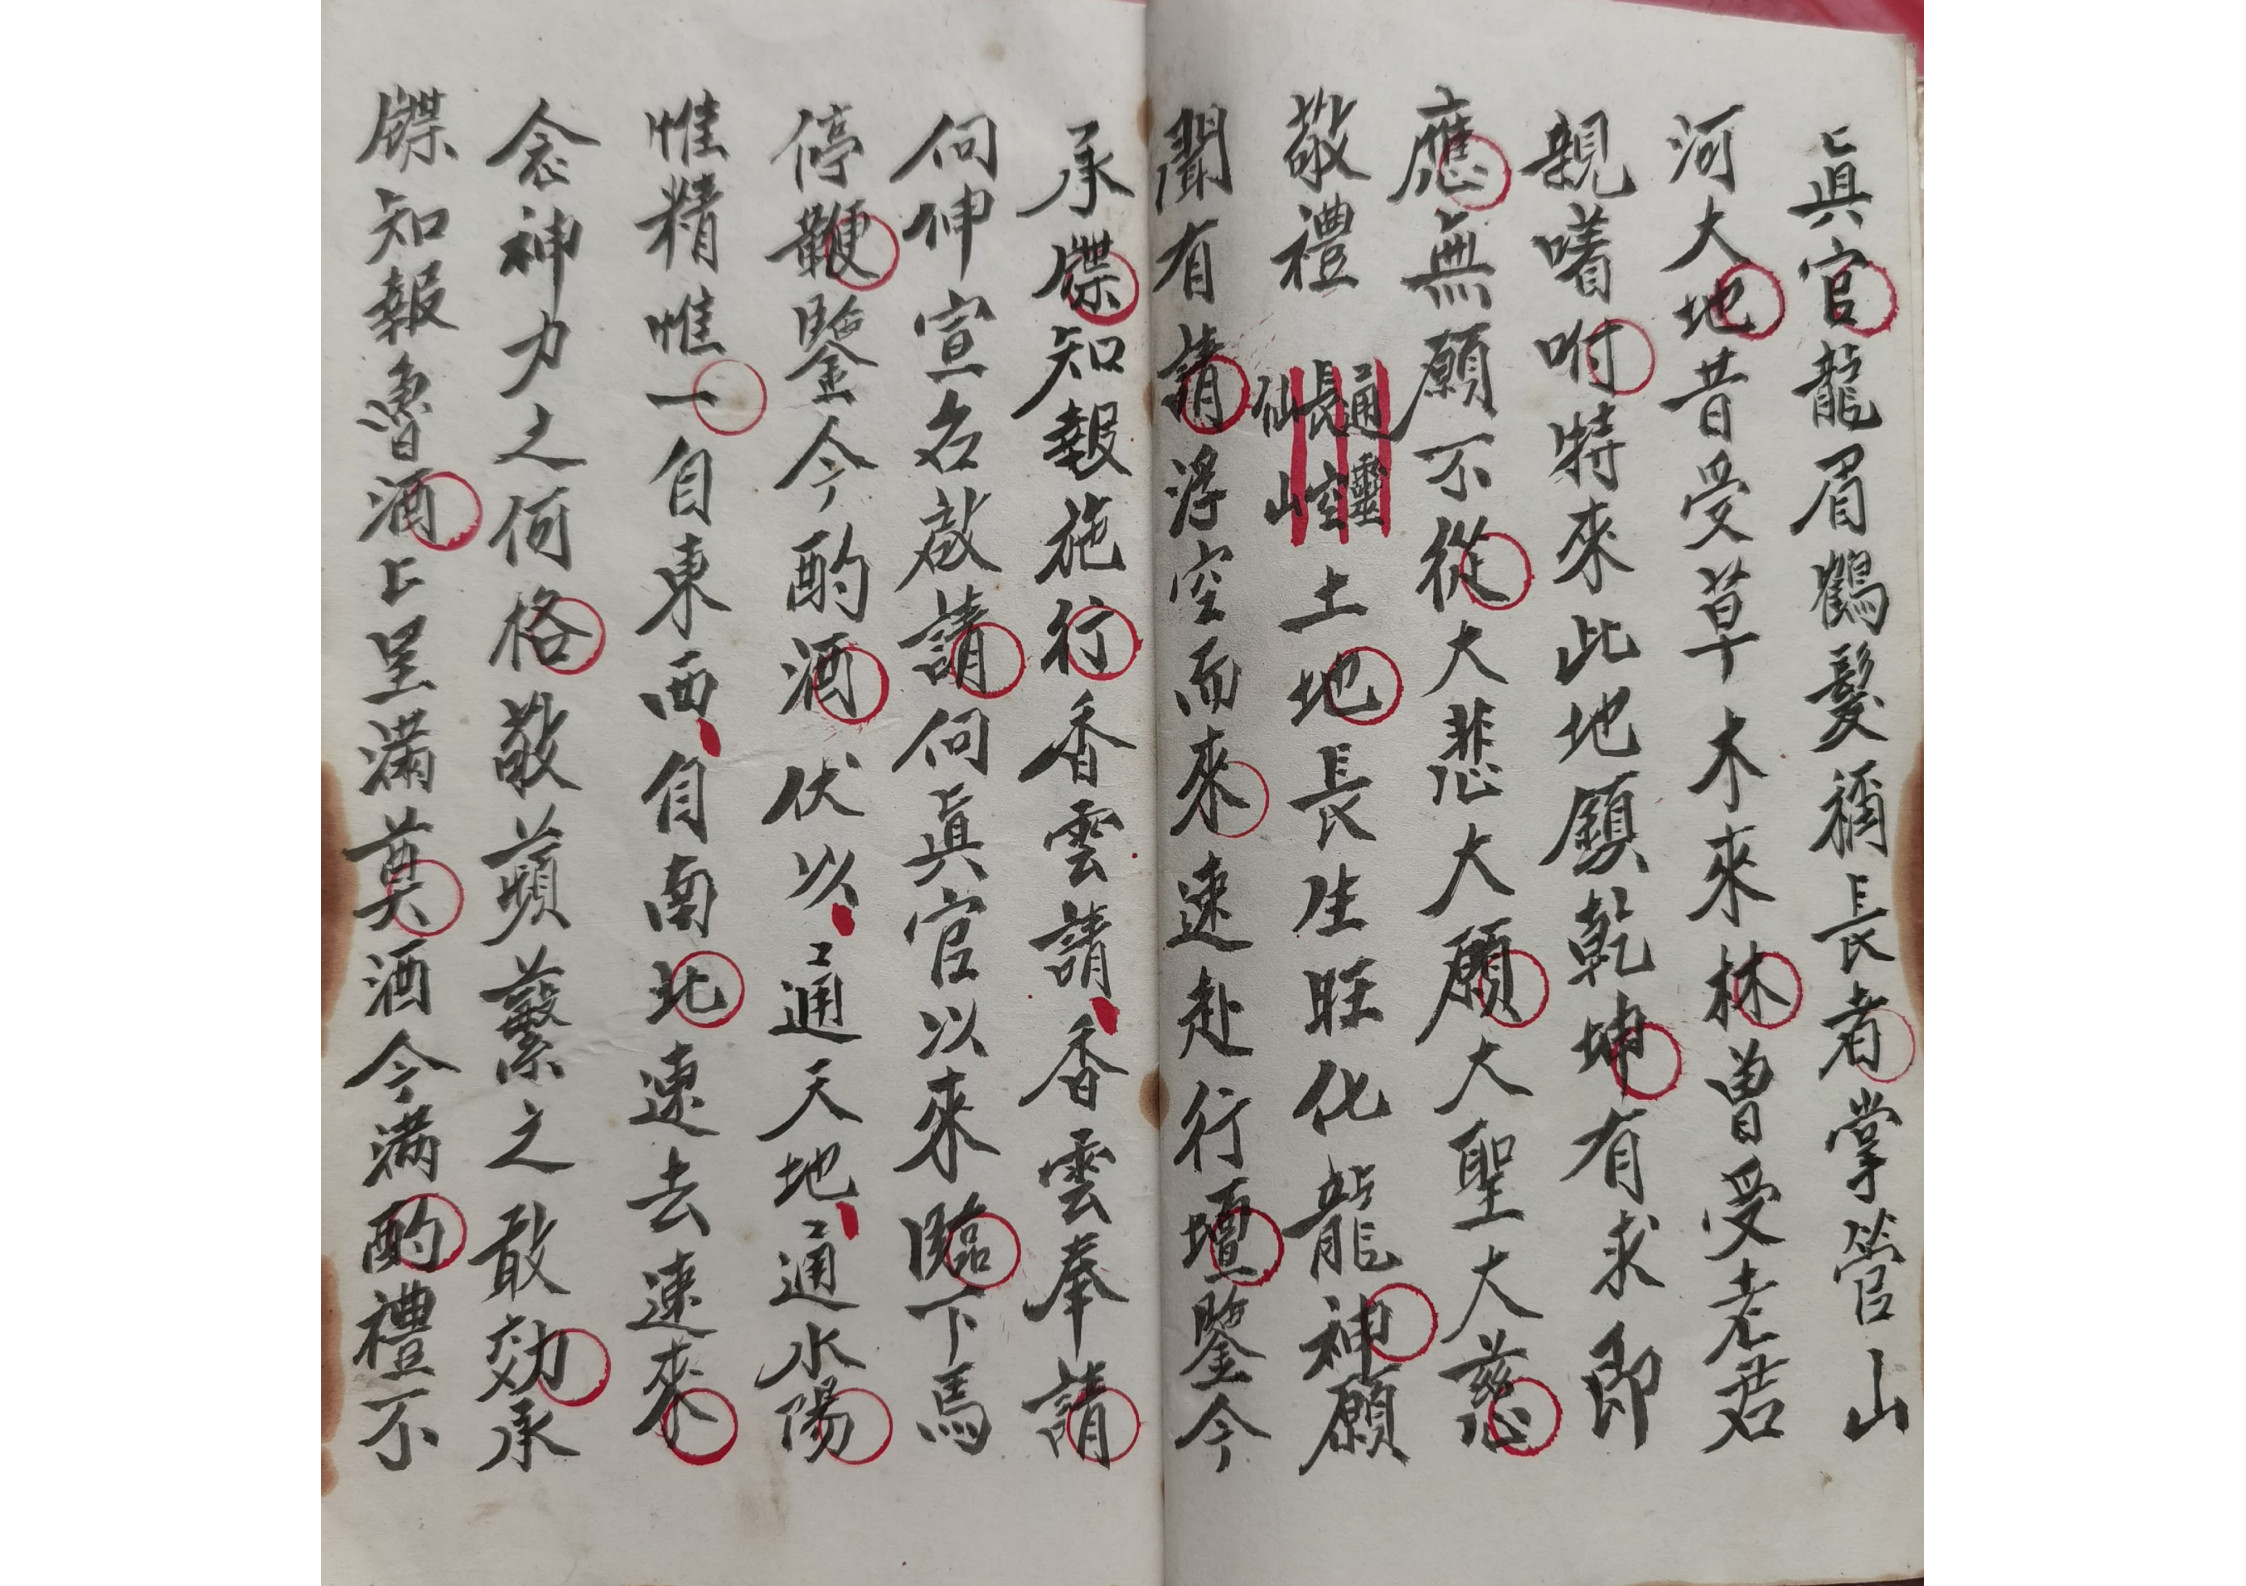 眞官龍眉鶴髮稱長者掌管山
河大地昔受草木來林曾受老君
親嘱咐特來此地鎮乾坤有求即
應無願不從大悲大願大聖大慈
敬禮通靈長空仙山土地長生旺化龍神願
聞有請浮空而來速赴行壇鑒今
承牒知報施行香雲請香雲奉請
伺伸宣名啟請伺眞官以來臨下馬
停鞭鑒今酌酒伏以通天地通水陽
惟精惟一自東西自南北速去速來
念神力之何格敬蘋蘩之敢効承
牒知報魯酒上呈滿奠酒今满酌禮不